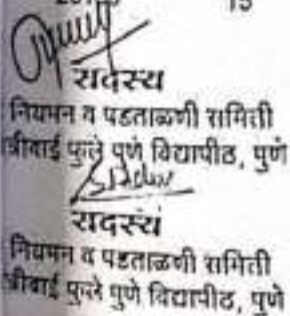 15
सदस्य
नियमन व पडताळणी समिती
त्रीबाई फुले पुणे विद्यापीठ, पुणे
सदस्य
नियमन व पडताळणी समिती
त्रीबाई फुले पुणे विद्यापीठ, पुणे